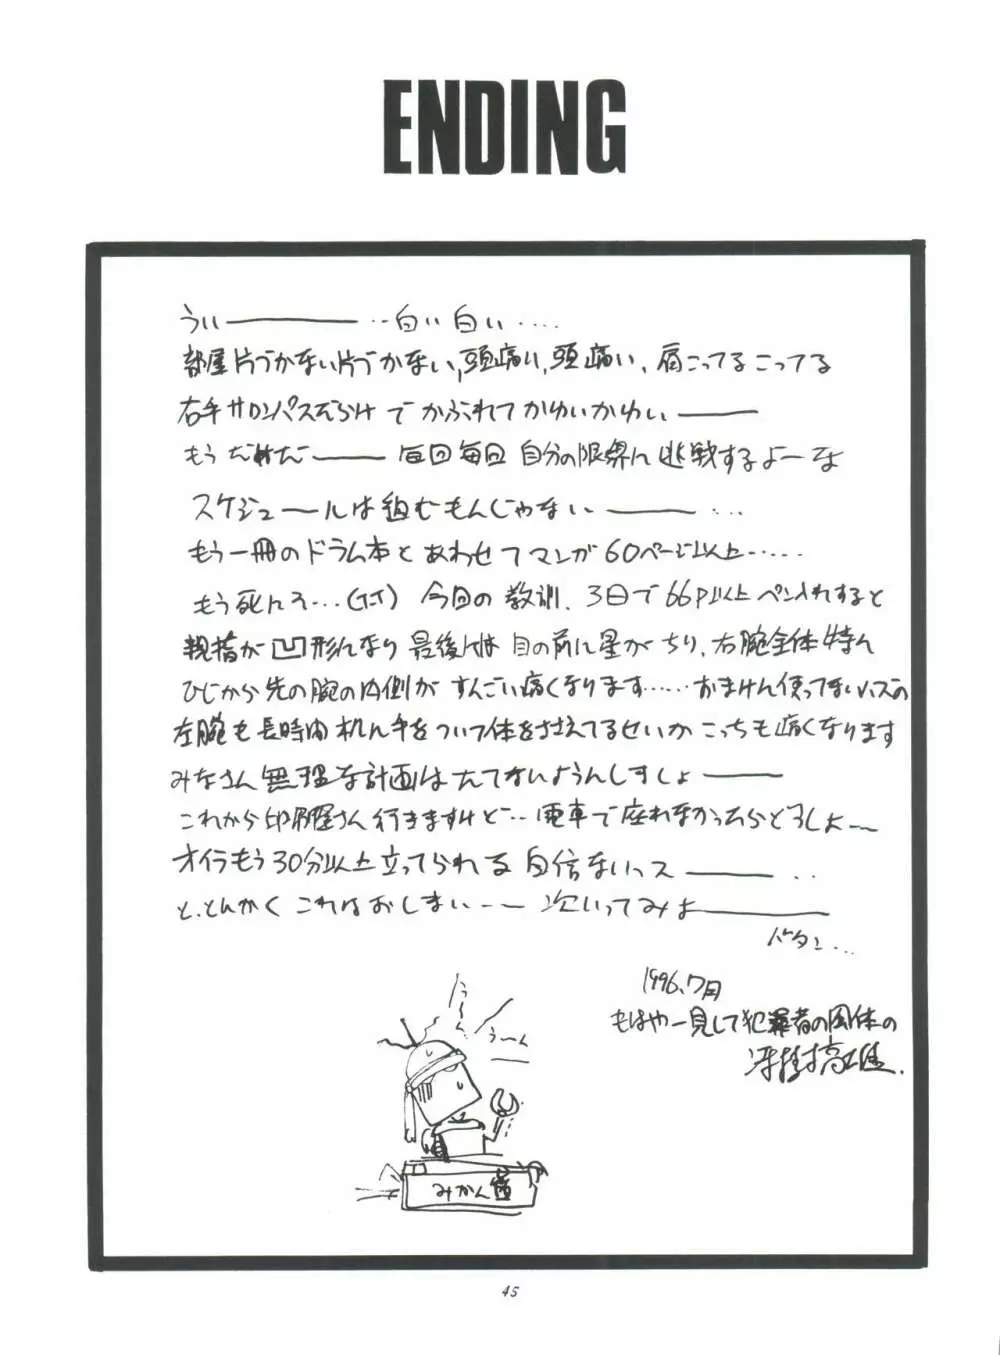 ENDING
うぃ――――‥白い白い‥‥
部屋片づかない片づかない、頭痛い、頭痛い、肩こってるこってる
右手サロンパスだらけでかぶれてかゆいかゆい―――
もうだめだ―――毎回毎回自分の限界に挑戦するよーな
スケジュールは組むもんじゃない―――‥‥
もう一冊のドラム本とあわせてマンガ60ページ以上‥‥‥
もう死んそ‥‥(TーT) 今回の教訓、3日で66P以上ペン入れすると
親指が凹形になり最後には目の前に星がちり、右腕全体特に
ひじから先の腕の内側がすんごい痛くなります‥‥‥おまけに使ってないハズの
左腕も長時間机に手をついて体をささえてるせいかこっちも痛くなります
みなさん無理な計画はたてないようにしましょ―――
これから印刷屋さん行きますけど‥‥電車で座れなかったらどうしよ〜
オイラもう30分以上立ってられる自信ないっス―――‥‥
と、とにかくこれはおしまい――次いってみよ―――――
バタン‥‥
1996、7月
もはや一見して犯罪者の風体の
冴樹高雄.
う〜ん
う〜ん
みかん
45